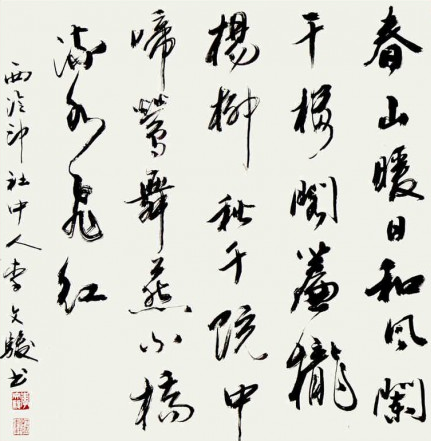 春山暖日和風闌
干樓閣簾櫳
楊柳秋千院中
啼鶯舞燕小橋
流水飛紅
西泠印社中人李文駿书